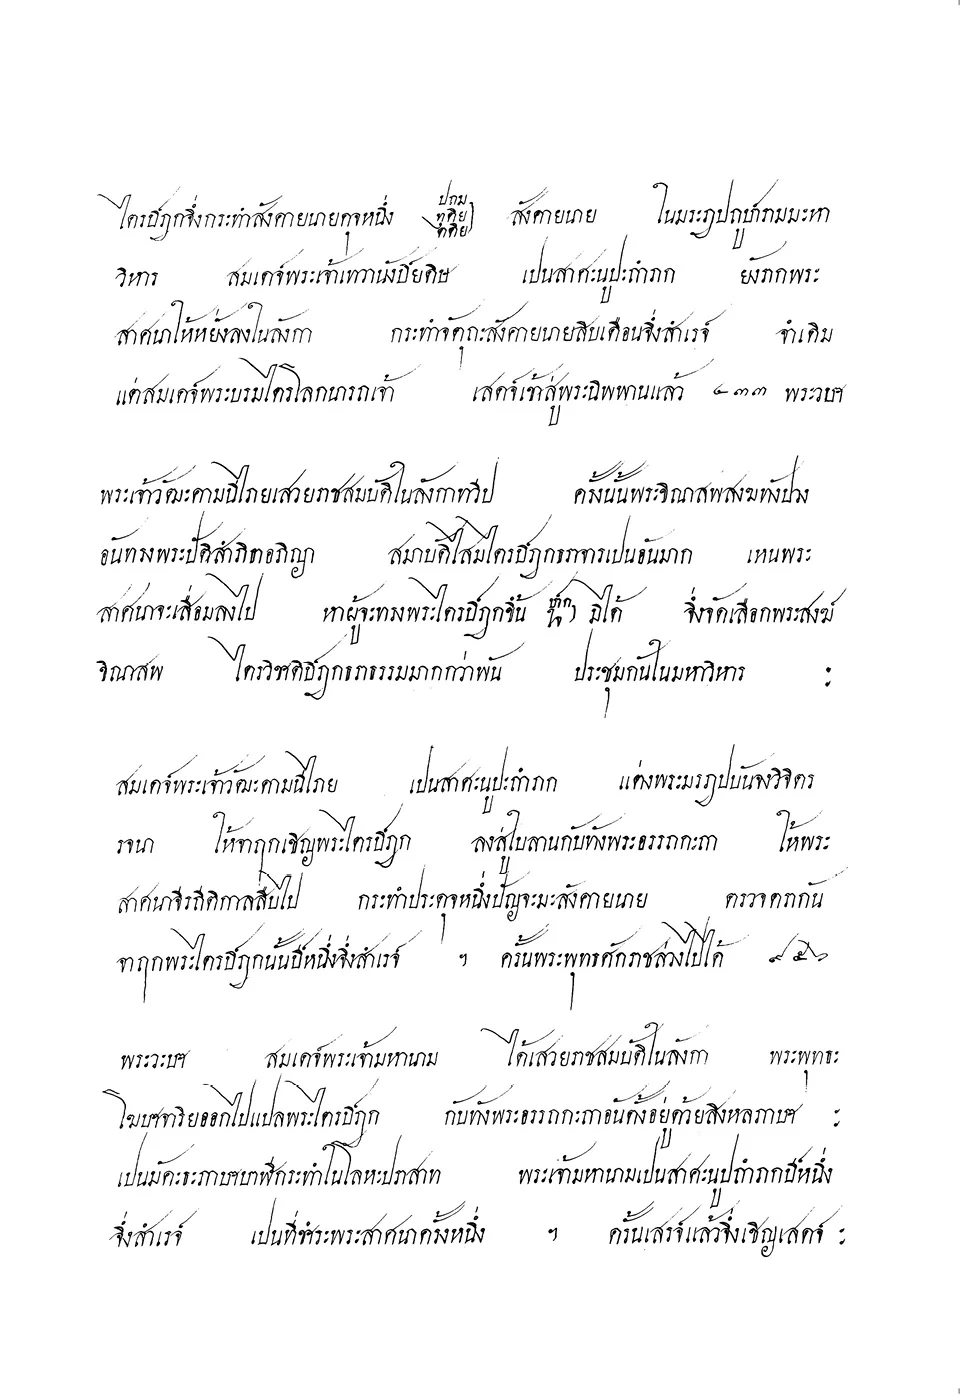 ไตรปิฎกจึ่งกระทำสังคายนายดุจหนึ่ง ปถม ทุติย ตติย สังคายนาย ในมระฎปถูปารามมะหา
วิหาร สมเดจ์พระเจ้าเทวานังปิยดิษ เปนสาศะนูปะถำภก ยังรากพระ
สาศนาให้หยั่งลงในลังกา กระทำจัตุถะสังคายนายสิบเดือนจึ่งสำเรจ์ จำเดิม
แต่สมเดจ์พระบรมไตรโลกนารถเจ้า เสดจ์เข้าสู่พระนิพพานแล้ว ๔๓๓ พระวบฯ
พระเจ้าวัฒะคามนีไภยเสวยราชสมบัติในลังกาทวีป ครั้งนั้นพระขิณาสพสงฆทังปวง
อันทรงพระปัติสำภิทาอภิญา สมาบัติไสมไตรปิฎกธราจารเปนอันมาก เหนพระ
สาศนาจะเสื่อมลงไป หาผู้จะทรงพระไตรปิฎกขึ้น ปาก ใจ มิได้ จึ่งจัดเลือกพระสงฆ์
ขิณาสพ ไตรวิชาติปิฎกธราธรรมมากกว่าพัน ประชุมกันในมหาวิหาร :
สมเดจ์พระเจ้าวัฒะคามนีไภย เปนสาศะนูปะถำภก แต่งพระมรฎปบันจงวิจิตร
รจนา ให้จาฤกเชิญพระไตรปิฎก ลงสู่ใบลานกับทังพระอรรถกะถา ให้พระ
สาศนาจีรถีติกาลสืบไป กระทำประดุจหนึ่งปัญจะมะสังคายนาย ตรวจตรากัน
จาฤกพระไตรปิฎกนั้นปีหนึ่งจึ่งสำเรจ์ ฯ ครั้นพระพุทธศักราชล่วงไปได้ ๙๕๖
พระวะบฯ สมเดจ์พระเจ้ามหานาม ได้เสวยราชสมบัติในลังกา พระพุทธะ
โฆษาจาริยออกไปแปลพระไตรปิฎก กับทังพระอรรถกะถาอันตั้งอยู่ด้วยสิงหลภาษา :
เปนมัคะธะภาษาบาฬีกระทำในโลหะปราสาท พระเจ้ามหานามเปนสาศะนูปถำภกปีหนึ่ง
จึ่งสำเรจ์ เปนที่ชำระพระสาศนาครั้งหนึ่ง ฯ ครั้นเสรจ์แล้วจึ่งเชิญเสดจ์ :